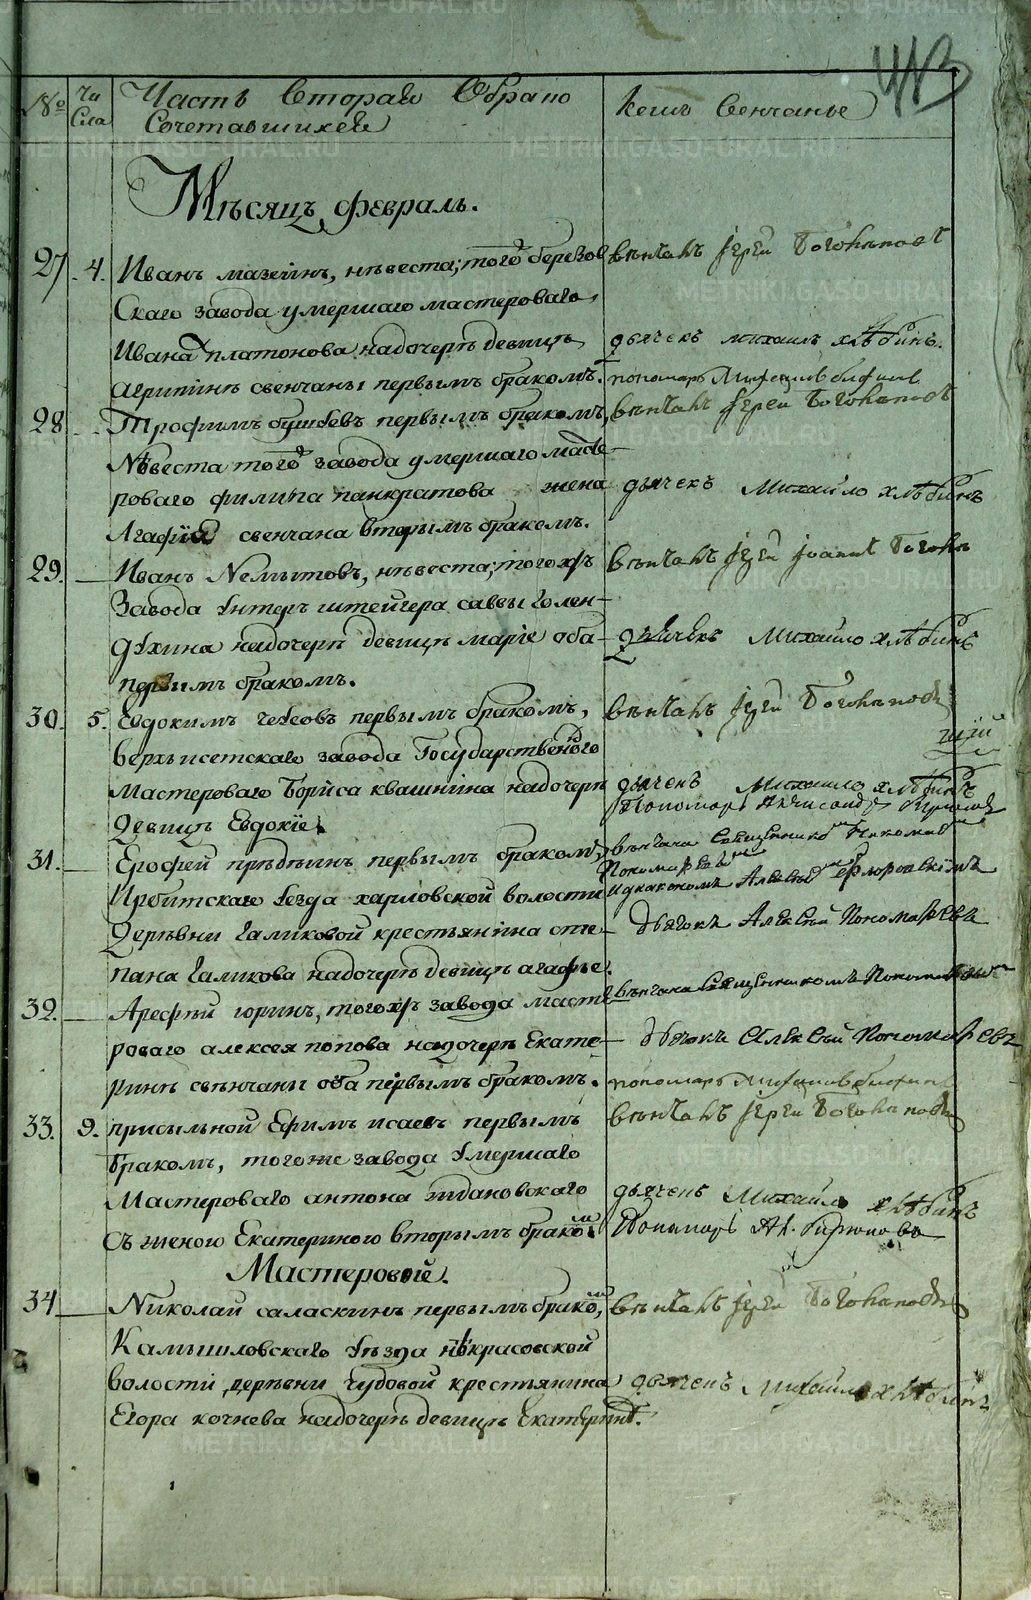 №
Чи
сла
Часть вторая О брако
сочетавшихся
Кемъ венчаны
Мѣсяцъ февраль.
27 4. Иванъ мазеинъ, нѣвеста; того березов
скаго завода умершаго мастероваго
Ивана платонова надочерѣ девицѣ
агрипинѣ свенчаны первымъ бракомъ.
вѣнчалъ іерей
дьячекъ михаилъ хлѣбинъ.
пономарь
28 Трофимъ первымъ бракомъ,
Нѣвеста того завода умершаго масте
роваго филипа панкратова жена
Агафия свенчана вторымъ бракомъ.
вѣнчалъ іерей
дьячекъ Михайло хлѣбинъ
29. Иванъ Немытовъ, нѣвеста; тогожъ
Завода унтеръ штейгера саввы голен-
дѣхина надочерѣ девицѣ марiе оба
первымъ бракомъ.
вѣнчалъ іерей Іоаннъ
дьячекъ Михайло хлѣбинъ
30. 5. Евдокимъ первымъ бракомъ,
верхъисетскаго завода Государственного
Мастероваго Бориса квашнина надочерѣ
Девицѣ Евдокiе.
вѣнчалъ іерей
дьячекъ Михайло хлѣбинъ
Пономарь
31. Ерофей первымъ бракомъ,
Ирбитскаго уезда харловской волости
Деревни Галиковой крестьянина сте-
пана Галикова надочерѣ девицѣ агафье.
вѣнчаны священникомъ
Пономаревымъ
идиакономъ Алексѣемъ
Дьячокъ Алексѣй Пономаревъ
32. Арефий юринъ, тогожъ завода масте
роваго алексея попова надочерѣ Екате-
ринѣ свѣнчаны оба первымъ бракомъ.
вѣнчаны священникомъ Пономаревымъ
Дьячокъ Алексѣй Пономаревъ
пономарь
33. 9. присыльной Ефимъ исаевъ первымъ
бракомъ, тогоже завода умершаго
Мастероваго антона ждановскаго
съ женою Екатериною вторымъ бракомъ.
вѣнчалъ іерей
дьячекъ Михайло хлѣбинъ
Пономарь
Мастеровой.
34 Николай саласкинъ первымъ бракомъ,
Камышловскаго уѣзда нѣкрасовской
волости, деревни Чудовой крестьянина
Егора кочнева надочерѣ девицѣ Екатеринѣ.
вѣнчалъ іерей
дьячекъ Михайло хлѣбинъ
METRIKI.GASO-URAL.RU